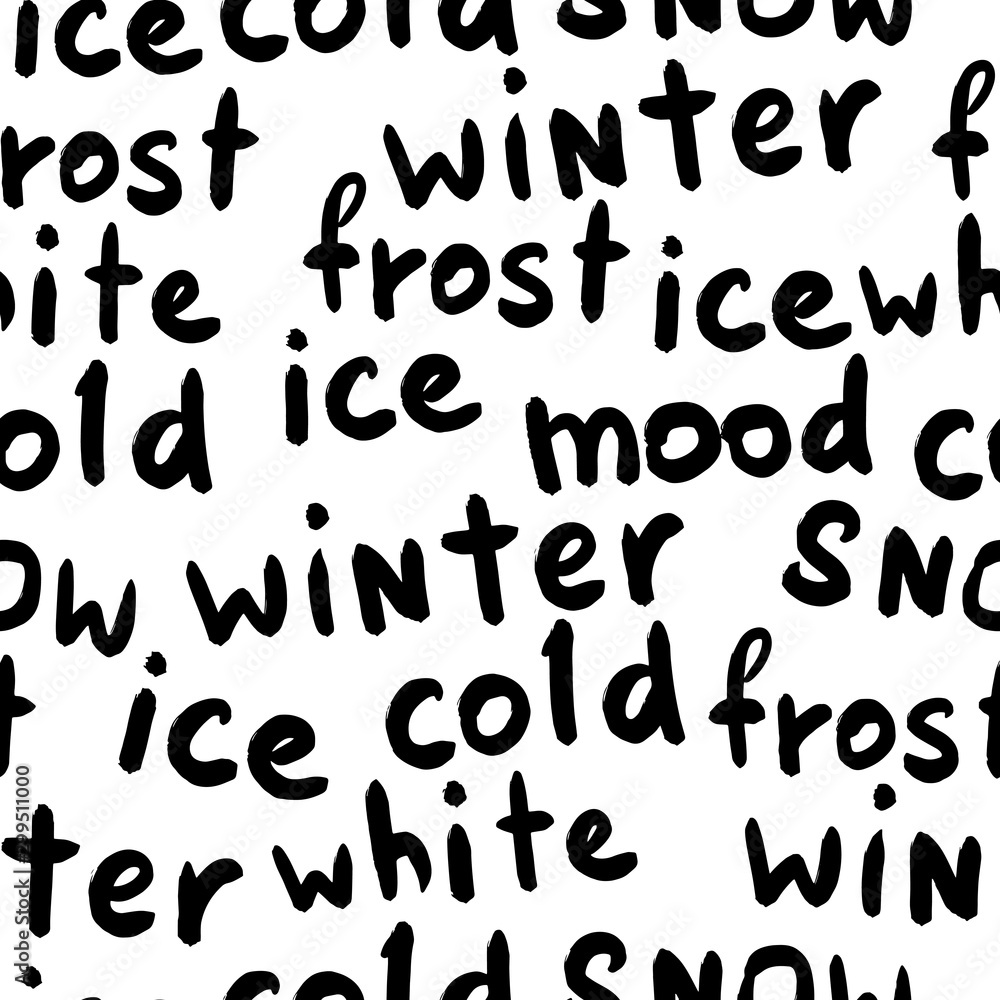 ice cold snow
rost winter f
ite frost ice wh
old ice mood co
ow winter sno
t ice cold frost
ter white win
cold snow
Adobe Stock | #299511000